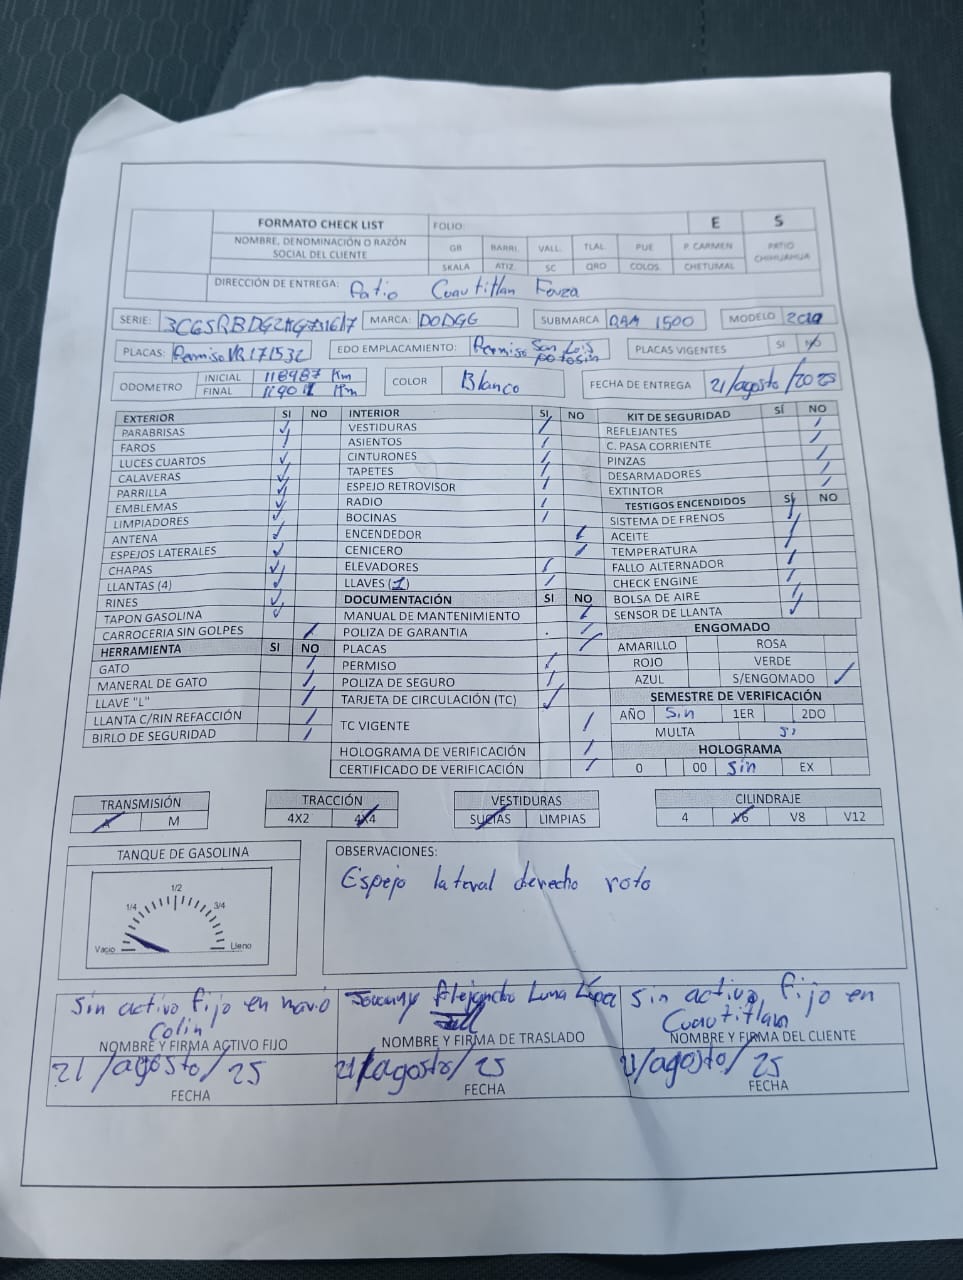 FORMATO CHECK LIST FOLIO: E S
NOMBRE, DENOMINACIÓN O RAZÓN SOCIAL DEL CLIENTE GB BARRI. VALL. TLAL. PUE P. CARMEN PATIO CHIHUAHUA
SKALA ATIZ. SC QRO COLOS. CHETUMAL
DIRECCIÓN DE ENTREGA: Patio Cuautitlan Fouza
SERIE: MARCA: DODGG SUBMARCA RAM 1500 MODELO 2019
PLACAS: Permiso VB171532 EDO EMPLACAMIENTO: Permiso San Luis potosin PLACAS VIGENTES SI NO
ODOMETRO INICIAL 118987 Km COLOR Blanco FECHA DE ENTREGA 21/agosto/2025
FINAL 119011 Km
EXTERIOR SI NO INTERIOR SI NO KIT DE SEGURIDAD SÍ NO
PARABRISAS VESTIDURAS REFLEJANTES
FAROS ASIENTOS C. PASA CORRIENTE
LUCES CUARTOS CINTURONES PINZAS
CALAVERAS TAPETES DESARMADORES
PARRILLA ESPEJO RETROVISOR EXTINTOR
EMBLEMAS RADIO TESTIGOS ENCENDIDOS SÍ NO
LIMPIADORES BOCINAS SISTEMA DE FRENOS
ANTENA ENCENDEDOR ACEITE
ESPEJOS LATERALES CENICERO TEMPERATURA
CHAPAS ELEVADORES FALLO ALTERNADOR
LLANTAS (4) LLAVES (1) CHECK ENGINE
RINES DOCUMENTACIÓN SI NO BOLSA DE AIRE
TAPON GASOLINA MANUAL DE MANTENIMIENTO SENSOR DE LLANTA
CARROCERIA SIN GOLPES POLIZA DE GARANTIA ENGOMADO
HERRAMIENTA SI NO PLACAS AMARILLO ROSA
GATO PERMISO ROJO VERDE
MANERAL DE GATO POLIZA DE SEGURO AZUL S/ENGOMADO
LLAVE "L" TARJETA DE CIRCULACIÓN (TC) SEMESTRE DE VERIFICACIÓN
LLANTA C/RIN REFACCIÓN TC VIGENTE AÑO Sin 1ER 2DO
BIRLO DE SEGURIDAD MULTA si
HOLOGRAMA DE VERIFICACIÓN HOLOGRAMA
CERTIFICADO DE VERIFICACIÓN 0 00 Sin EX
TRANSMISIÓN TRACCIÓN VESTIDURAS CILINDRAJE
A M 4X2 4X4 SUCIAS LIMPIAS 4 V6 V8 V12
TANQUE DE GASOLINA OBSERVACIONES:
Espejo lateral derecho roto
1/2
1/4 3/4
Vacio Lleno
Sin activo fijo en navío Colin Alejandro Luna López Sin activo fijo en Cuautitlan
NOMBRE Y FIRMA ACTIVO FIJO NOMBRE Y FIRMA DE TRASLADO NOMBRE Y FIRMA DEL CLIENTE
21/agosto/25 21/agosto/25 21/agosto/25
FECHA FECHA FECHA